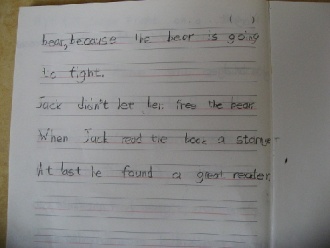 ( )
bear, because the bear is going
to fight.
Jack didn't let her free the bear
When Jack read the book a stanger
At last he found a great reader.